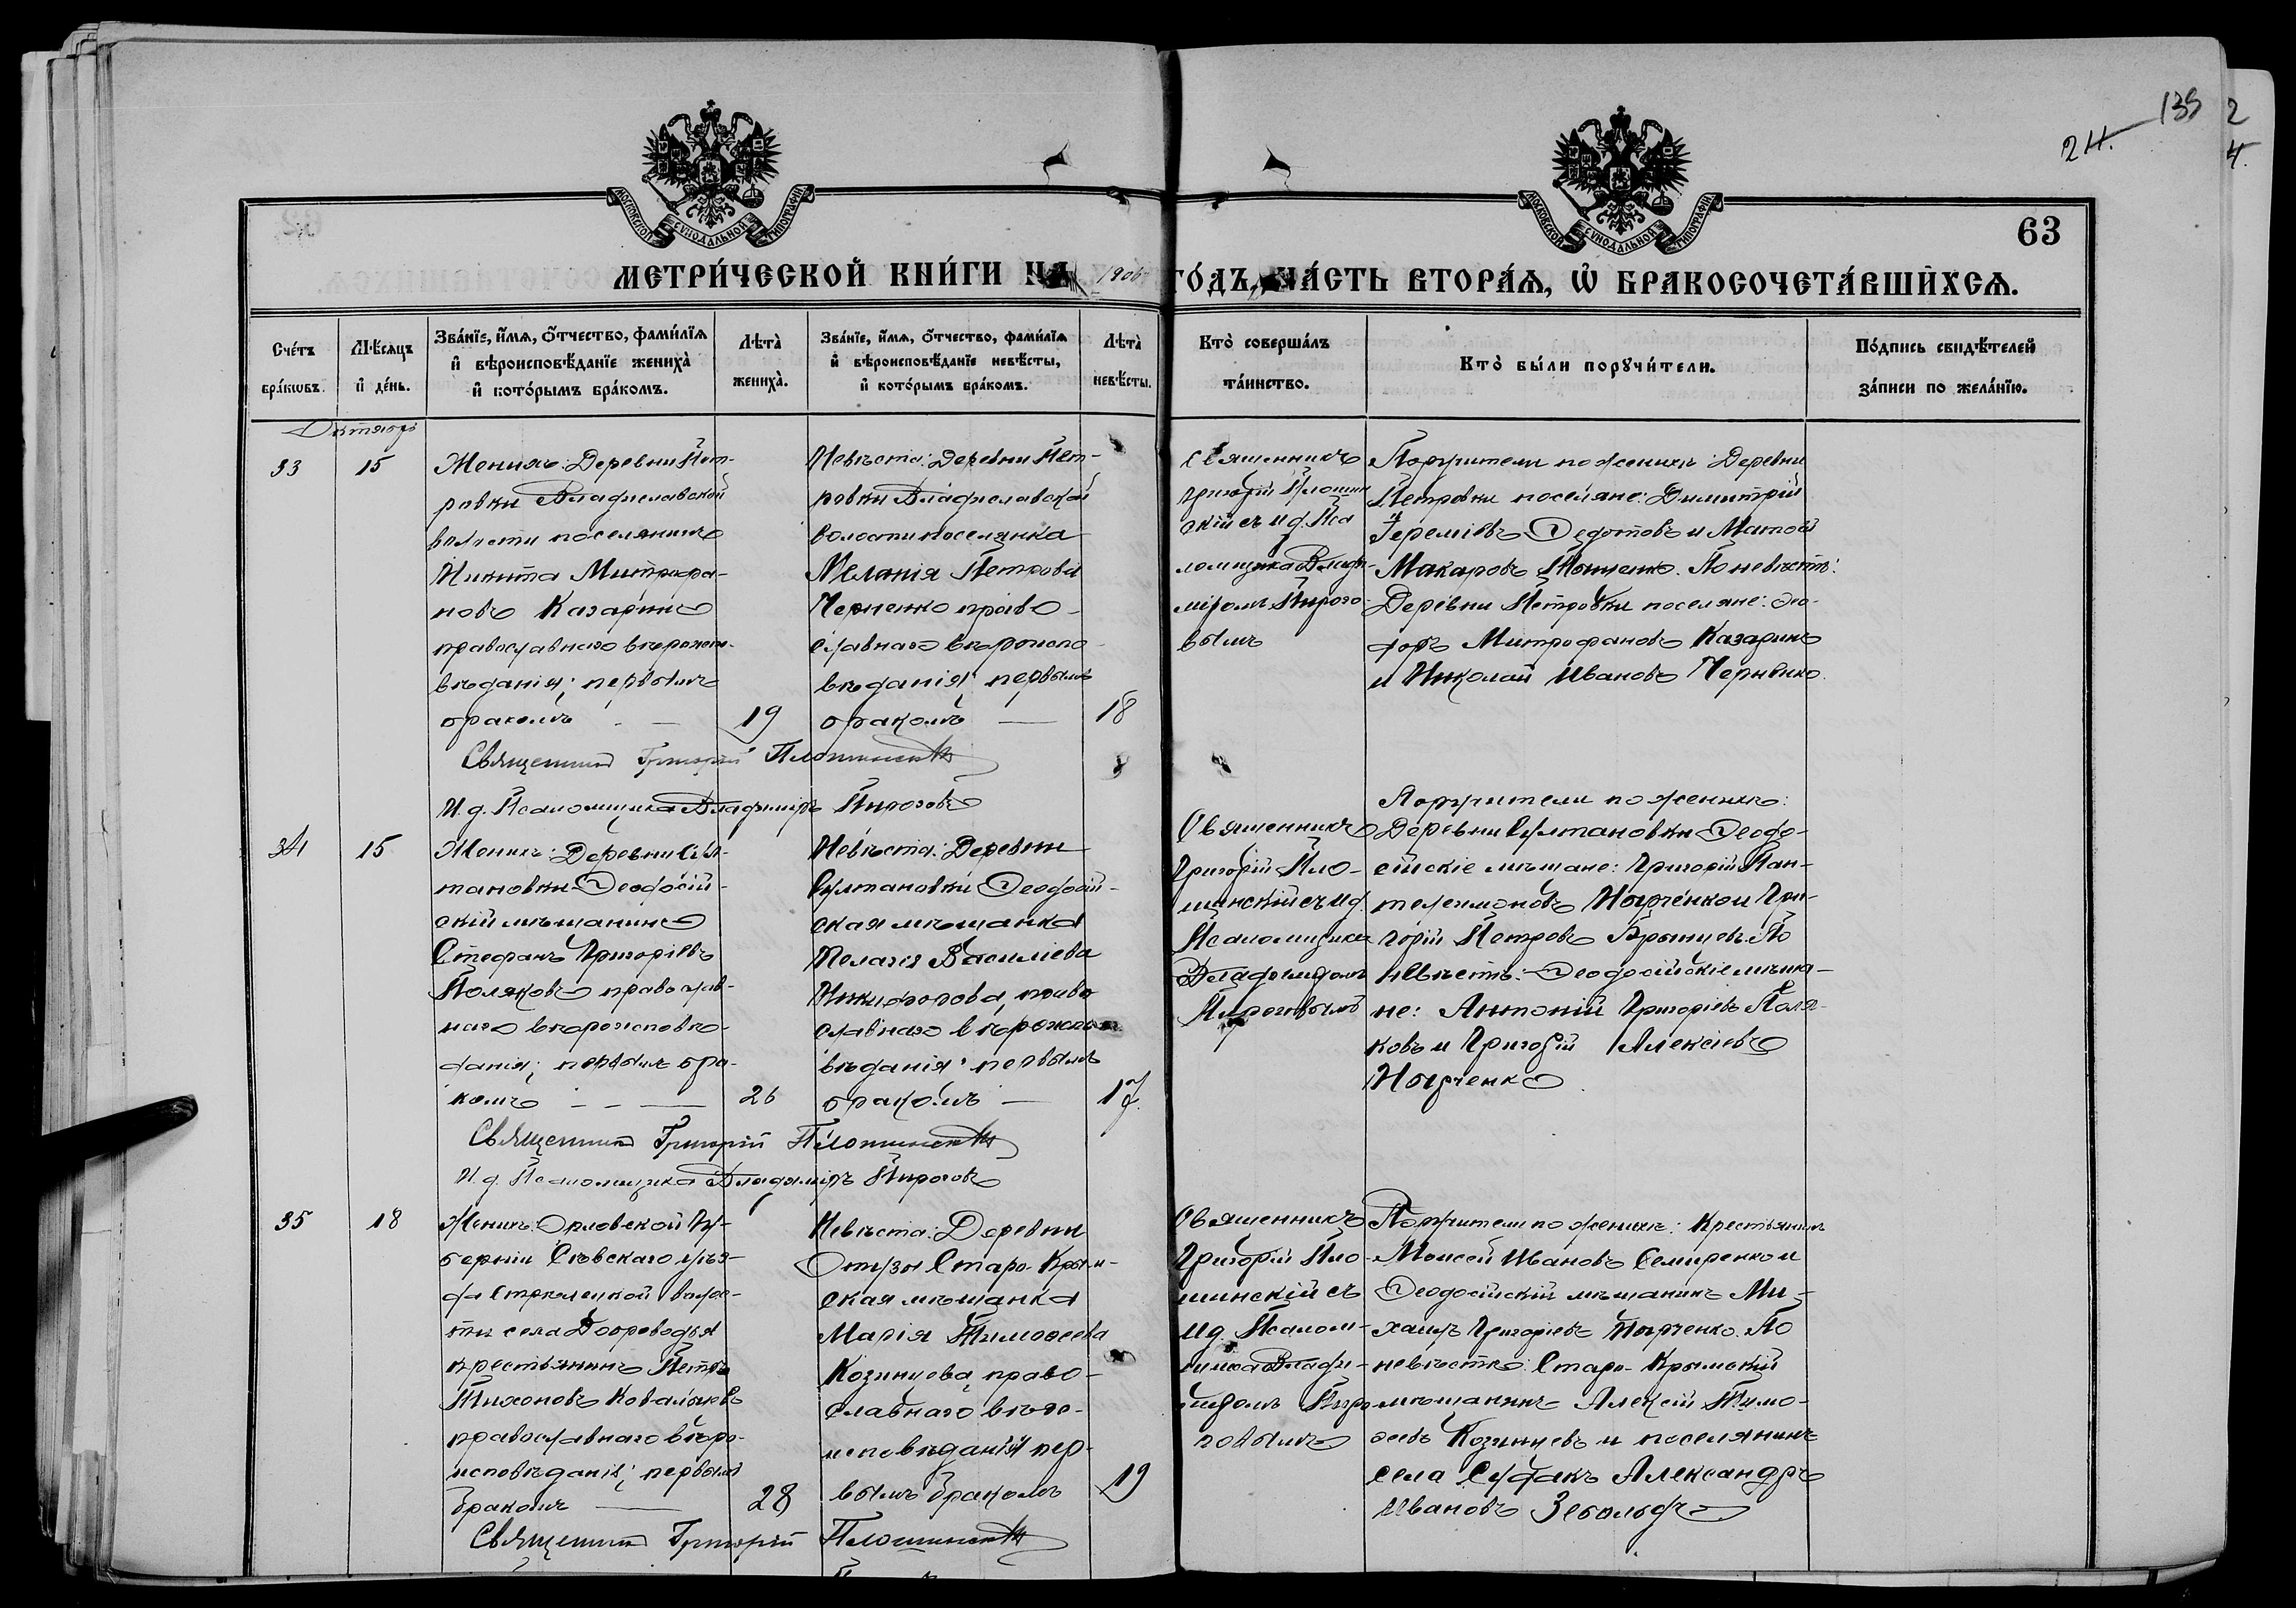 135
2
24.
4.
МОСКОВСКОЙ СѴНОДАЛЬНОЙ ТИПОГРАФІИ
МОСКОВСКОЙ СѴНОДАЛЬНОЙ ТИПОГРАФІИ
63
МЕТРИ́ЧЕСКОЙ КНИ́ГИ НА 1906 ГО́ДЪ, ЧА́СТЬ ВТОРА́Ѧ, Ѽ БРАКОСОЧЕТА́ВШИХСѦ.
Сче́тъ бра́кѡвъ.
Мѣ́сяцъ и де́нь.
Зва́нїе, и́мѧ, о́тчество, фами́лїѧ и вѣроисповѣ́данїе жениха̀ и кото́рымъ бра́комъ.
Лѣта̀ жениха̀.
Зва́нїе, и́мѧ, о́тчество, фами́лїѧ и вѣроисповѣ́данїе невѣ́сты, и кото́рымъ бра́комъ.
Лѣта̀ невѣ́сты.
Кто̀ соверша́лъ та́инство.
Кто̀ бы́ли порꙋчи́тели.
По́дпись свидѣ́телей за́писи по жела́нїю.
Октябрь
33
15
Женихъ: Деревни Пет-
ровки Владиславской
волости поселянинъ
Никита Митрофа-
новъ Казаринъ
православнаго вѣроиспо-
вѣданія; первымъ
бракомъ — 19
Невѣста: Деревни Пет-
ровки Владиславской
волости поселянка
Меланія Петрова
Черненко право-
славнаго вѣроиспо-
вѣданія первымъ
бракомъ — 18
Священникъ
Григорій Плошин
скій съ и.д. Пса
ломщика Влади-
міромъ Пирого-
вымъ
Поручители по женихѣ: Деревни
Петровки поселяне: Димитрій
Іереміевъ Федотовъ и Матвей
Макаровъ. По невѣстѣ:
Деревни Петровки поселяне: Фео-
доръ Митрофановъ Казаринъ
и Николай Ивановъ Черненко.
Священникъ Григорій Плошинскій
И.д. Псаломщика Владиміръ Пироговъ
34
15
Женихъ: Деревни Сул-
тановки Феодосій-
скій мѣщанинъ
Стефанъ Григоріевъ
Поляковъ православ-
наго вѣроисповѣ-
данія; первымъ бра-
комъ — 26
Невѣста: Деревни
Султановки Феодосій-
ская мѣщанка
Пелагія Василіева
Никифорова, право
славнаго вѣроиспо-
вѣданія; первымъ
бракомъ — 17.
Священникъ
Григорій Пло-
шинскій съ и.д.
Псаломщика
Владиміромъ
Пироговымъ
Поручители по женихѣ:
Деревни Султановки Феодо-
сійскіе мѣщане: Григорій Пан-
телеимоновъ и Гри-
горій Петровъ. По
невѣстѣ: Феодосійскіе мѣща-
не: Антоній Григоріевъ Поля-
ковъ и Григорій Алексіевъ
Священникъ Григорій Плошинскій
И.д. Псаломщика Владиміръ Пироговъ
35
18
Женихъ: Орловской Гу-
берніи Сѣвскаго уѣз-
да Стрѣлецкой волос-
ти села Доброводья
крестьянинъ Петръ
Тихоновъ Ковалевъ
православнаго вѣро-
исповѣданія; первымъ
бракомъ — 28
Невѣста: Деревни
Отузы Старо-Крым-
ская мѣщанка
Марія Тимоѳеева
Козинцева, право-
славнаго вѣро-
исповѣданія пер-
вымъ бракомъ 19
Священникъ
Григорій Пло-
шинскій съ
и.д. Псалом-
щика Влади-
міромъ Пиро
говымъ
Поручители по женихѣ: Крестьянинъ
Моисей Ивановъ Семиренко и
Феодосійскій мѣщанинъ Ми-
хаилъ Григоріевъ. По
невѣстѣ: Старо-Крымскій
мѣщанинъ Алексій Тимо-
ѳеевъ Козинцевъ и поселянинъ
села Судакъ Александръ
Ивановъ Зебольдъ
Священникъ Григорій Плошинскій